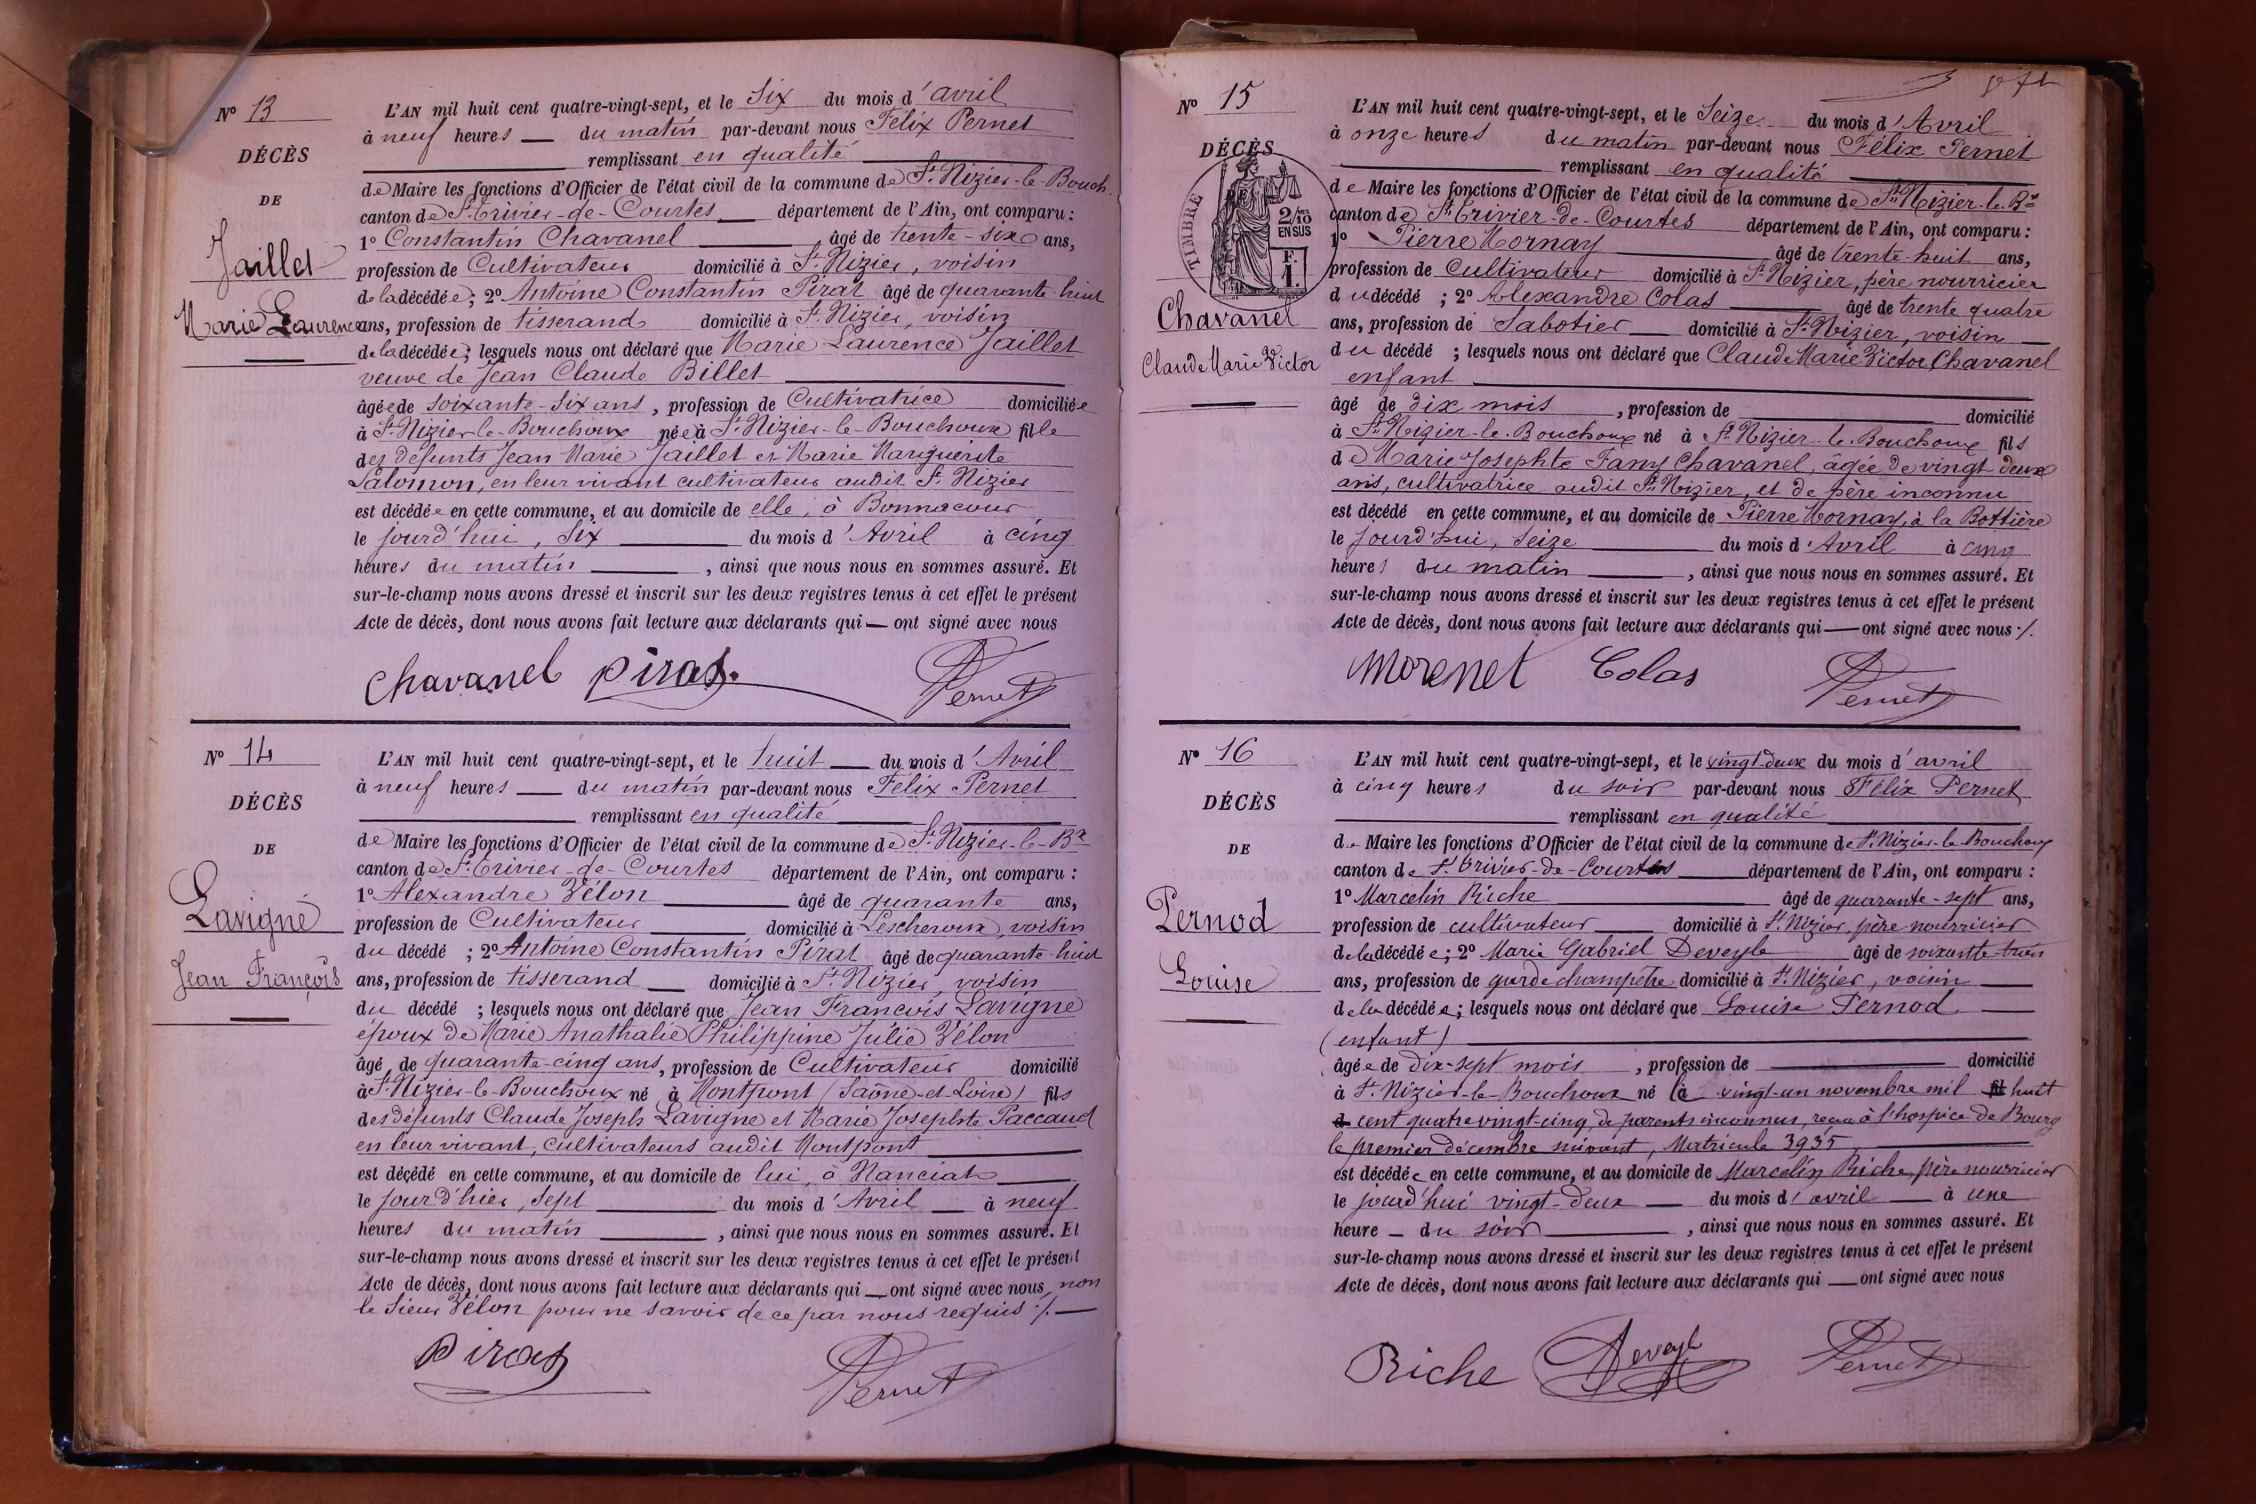 N° 13
DÉCÈS
DE
Jaillet
Marie Laurence
L'AN mil huit cent quatre-vingt-sept, et le Six du mois d'avril
à neuf heures du matin par-devant nous Félix Pernet
remplissant en qualité
de Maire les fonctions d'Officier de l'état civil de la commune de St Nizier-le-Bouch.
canton de St Trivier-de-Courtes département de l'Ain, ont comparu :
1° Constantin Chavanel âgé de trente-six ans,
profession de Cultivateur domicilié à St Nizier, voisin
de la décédée ; 2° Antoine Constantin Pirat âgé de quarante-huit
ans, profession de tisserand domicilié à St Nizier, voisin
de la décédée ; lesquels nous ont déclaré que Marie Laurence Jaillet
veuve de Jean Claude Billet
âgée de soixante-six ans, profession de Cultivatrice domiciliée
à St Nizier-le-Bouchoux née à St Nizier-le-Bouchoux fille
des défunts Jean Marie Jaillet et Marie Marguerite
Salomon, en leur vivant cultivateurs audit St Nizier
est décédée en cette commune, et au domicile de elle, à Bonnacour
le jourd'hui, Six du mois d'Avril à cinq
heures du matin, ainsi que nous nous en sommes assuré. Et
sur-le-champ nous avons dressé et inscrit sur les deux registres tenus à cet effet le présent
Acte de décès, dont nous avons fait lecture aux déclarants qui — ont signé avec nous
Chavanel Pirat. Pernet
N° 14
DÉCÈS
DE
Lavigne
Jean François
L'AN mil huit cent quatre-vingt-sept, et le huit du mois d'Avril
à neuf heures du matin par-devant nous Félix Pernet
remplissant en qualité
de Maire les fonctions d'Officier de l'état civil de la commune de St Nizier-le-Bx
canton de St Trivier-de-Courtes département de l'Ain, ont comparu :
1° Alexandre Vélon âgé de quarante ans,
profession de Cultivateur domicilié à Lescheroux, voisin
du décédé ; 2° Antoine Constantin Pirat âgé de quarante-huit
ans, profession de tisserand domicilié à St Nizier, voisin
du décédé ; lesquels nous ont déclaré que Jean François Lavigne
époux de Marie Anathalie Philippine Julie Vélon
âgé de quarante-cinq ans, profession de Cultivateur domicilié
à St Nizier-le-Bouchoux né à Montpont (Saône-et-Loire) fils
des défunts Claude Joseph Lavigne et Marie Josephte Paccaud
en leur vivant, cultivateurs audit Montpont
est décédé en cette commune, et au domicile de lui, à Nanciat
le jour d'hier, sept du mois d'Avril à neuf
heures du matin, ainsi que nous nous en sommes assuré. Et
sur-le-champ nous avons dressé et inscrit sur les deux registres tenus à cet effet le présent
Acte de décès, dont nous avons fait lecture aux déclarants qui — ont signé avec nous non
le Sieur Vélon pour ne savoir de ce par nous requis ./.
Pirat Pernet
N° 15
DÉCÈS
TIMBRE
2/10
EN SUS
F.
1.
Chavanel
Claude Marie Victor
L'AN mil huit cent quatre-vingt-sept, et le Seize du mois d'Avril
à onze heures du matin par-devant nous Félix Pernet
remplissant en qualité
de Maire les fonctions d'Officier de l'état civil de la commune de St Nizier-le-Bx
canton de St Trivier-de-Courtes département de l'Ain, ont comparu :
1° Pierre Mornay âgé de trente-huit ans,
profession de Cultivateur domicilié à St Nizier, père nourricier
du décédé ; 2° Alexandre Colas âgé de trente quatre
ans, profession de Sabotier domicilié à St Nizier, voisin
du décédé ; lesquels nous ont déclaré que Claude Marie Victor Chavanel
enfant
âgé de dix mois, profession de domicilié
à St Nizier-le-Bouchoux né à St Nizier-le-Bouchoux fils
de Marie Josephte Fany Chavanel, âgée de vingt-deux
ans, cultivatrice audit St Nizier, et de père inconnu
est décédé en cette commune, et au domicile de Pierre Mornay, à la Bottière
le jourd'hui, seize du mois d'Avril à cinq
heures du matin, ainsi que nous nous en sommes assuré. Et
sur-le-champ nous avons dressé et inscrit sur les deux registres tenus à cet effet le présent
Acte de décès, dont nous avons fait lecture aux déclarants qui — ont signé avec nous ./.
Morenet Colas Pernet
N° 16
DÉCÈS
DE
Pernod
Louise
L'AN mil huit cent quatre-vingt-sept, et le vingt-deux du mois d'avril
à cinq heures du soir par-devant nous Félix Pernet
remplissant en qualité
de Maire les fonctions d'Officier de l'état civil de la commune de St Nizier-le-Bouchoux
canton de St Trivier-de-Courtes département de l'Ain, ont comparu :
1° Marcelin Riche âgé de quarante-sept ans,
profession de cultivateur domicilié à St Nizier, père nourricier
de la décédée ; 2° Marie Gabriel Deveyle âgé de soixante-trois
ans, profession de garde champêtre domicilié à St Nizier, voisin
de la décédée ; lesquels nous ont déclaré que Louise Pernod
(enfant)
âgée de dix-sept mois, profession de domicilié
à St Nizier-le-Bouchoux né le vingt-un novembre mil huit
cent quatre-vingt-cinq, de parents inconnus, reçue à l'hospice de Bourg
le premier décembre suivant, Matricule 3935
est décédée en cette commune, et au domicile de Marcelin Riche, père nourricier
le jourd'hui vingt-deux du mois d'avril à une
heure du soir, ainsi que nous nous en sommes assuré. Et
sur-le-champ nous avons dressé et inscrit sur les deux registres tenus à cet effet le présent
Acte de décès, dont nous avons fait lecture aux déclarants qui — ont signé avec nous
Riche Deveyle Pernet